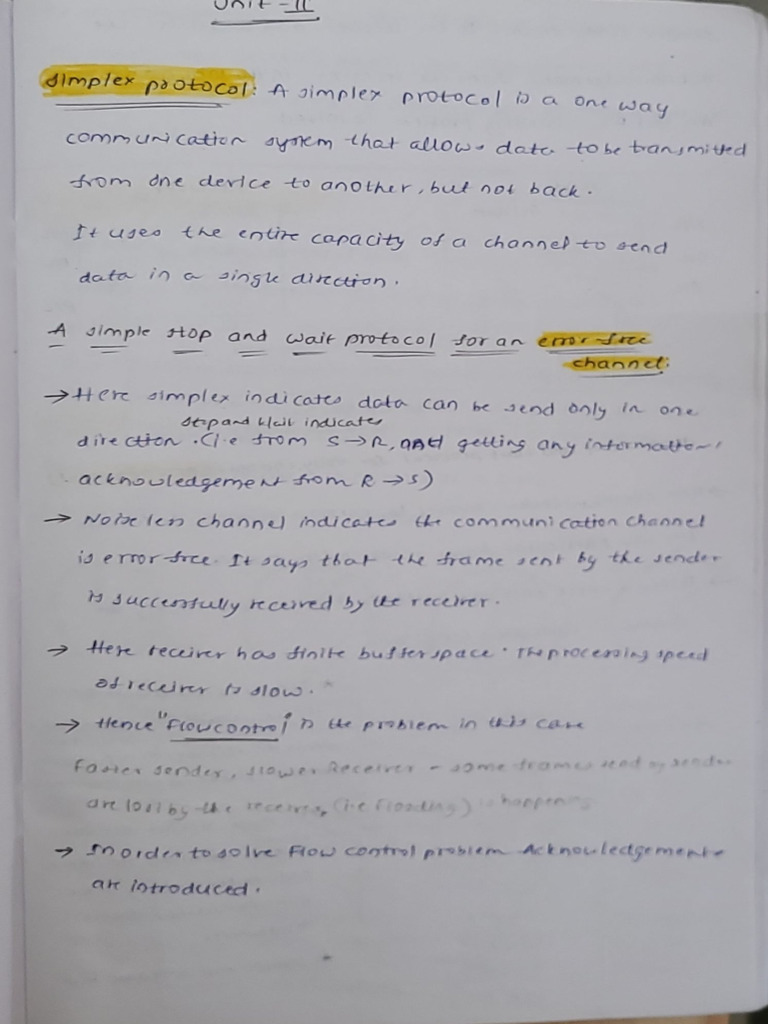 Unit - II
simplex protocol: A simplex protocol is a one way
communication system that allows data to be transmitted
from one device to another, but not back.
It uses the entire capacity of a channel to send
data in a single direction.
A simple stop and wait protocol for an error-free
channel:
→ Here simplex indicates data can be send only in one
stop and wait indicates
direction. (i.e from S→R, getting any information/
acknowledgement from R→S)
→ Noise less channel indicates the communication channel
is error free. It says that the frame sent by the sender
is successfully received by the receiver.
→ Here receiver has finite buffer space. The processing speed
of receiver is slow.
→ Hence "Flow control" is the problem in this case
Faster sender, slower Receiver - some frames send by sender
are lost by the receiver, (i.e flooding) is happening
→ In order to solve Flow control problem Acknowledgements
are introduced.